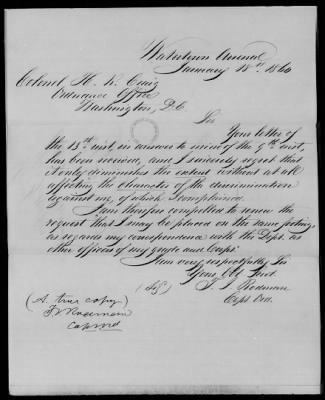 Watertown Arsenal
January 18th 1860
Colonel H. K. Craig
Ordnance Office
Washington, D.C.
Sir
Your letter of
the 13th inst, in answer to mine of the 9th inst,
has been received, and I sincerely regret that
it only diminishes the extent without at all
affecting the character of the discrimination
against me, of which I complained.
I am therefore compelled to renew the
request that I may be placed on the same footing,
as regards my correspondence with the Dept. as
other officers of my grade and Corps.
I am very respectfully Sir
Your Obt Servt.
(Sgd) T. J. Rodman
Capt Ord.
(A true copy)
T J Rodman
Capt Ord